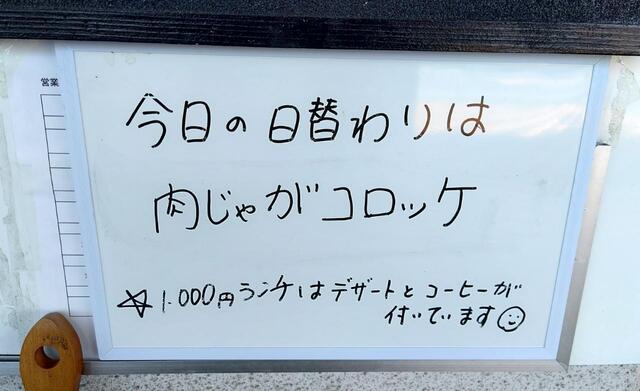 営業
今日の日替わりは
肉じゃがコロッケ
☆1.000円ランチはデザートとコーヒーが
付いています☺